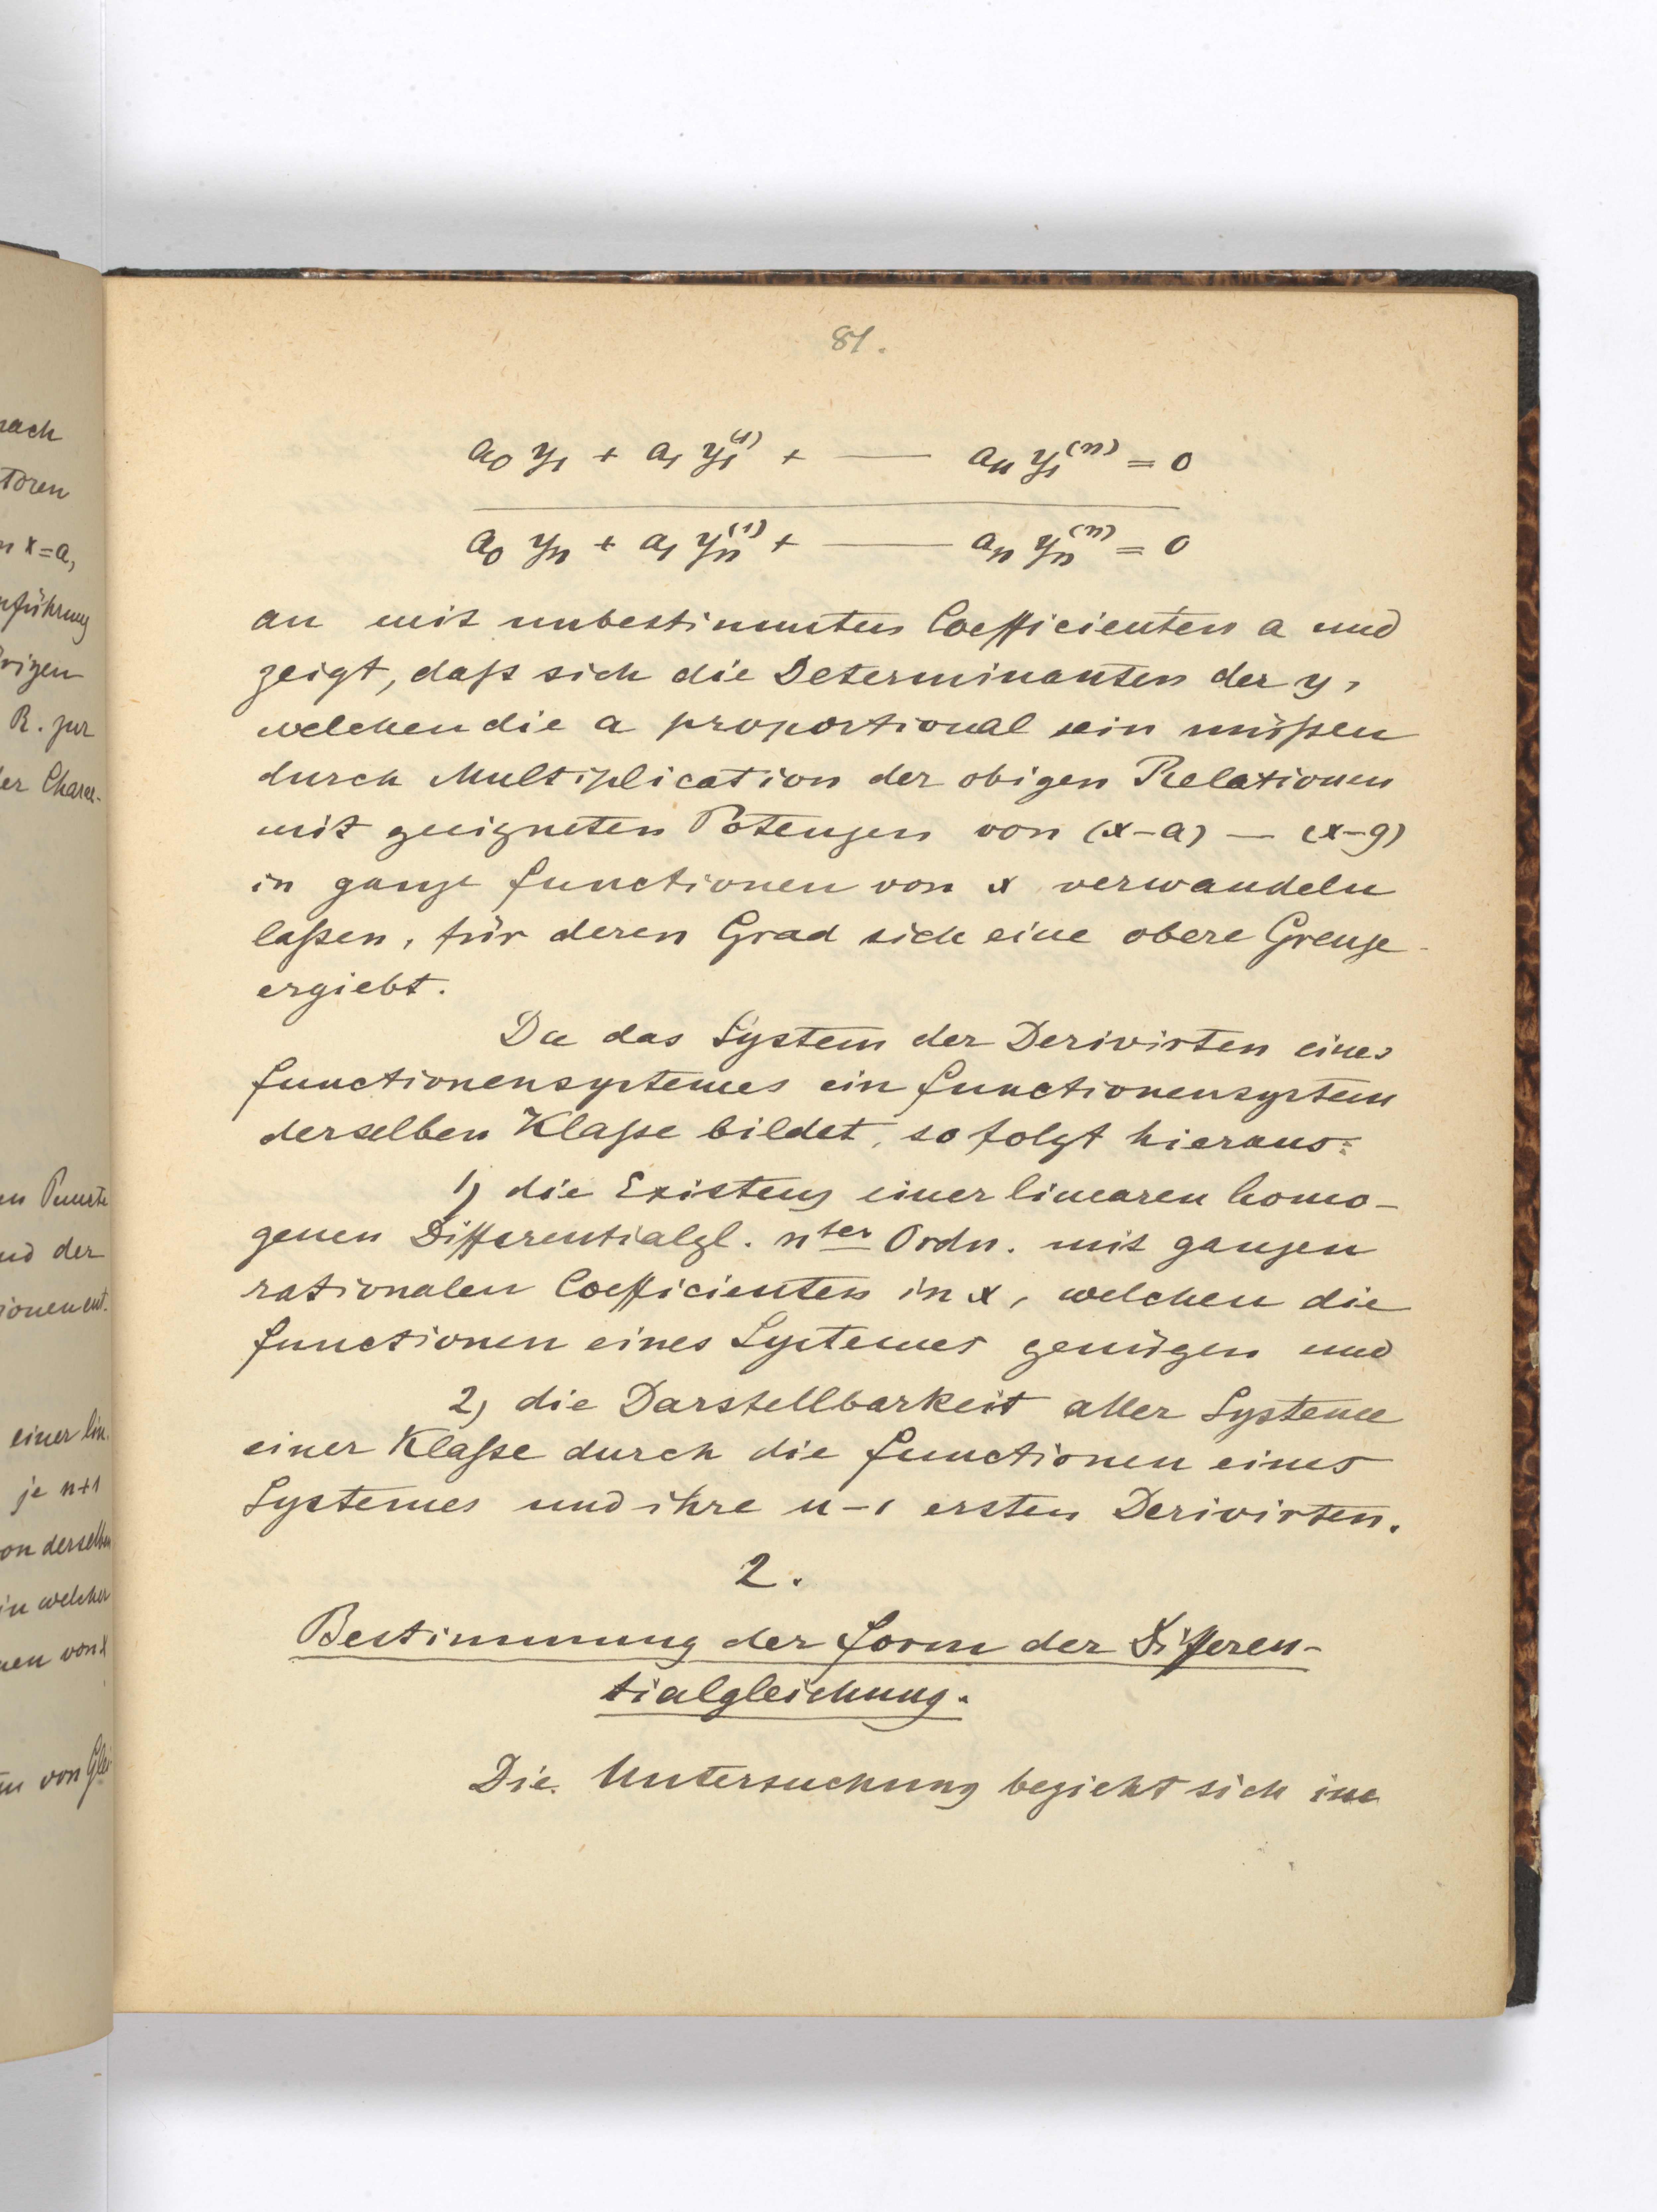 81.
a₀ y₁ + a₁ y₁⁽¹⁾ + — aₙ y₁⁽ⁿ⁾ = 0
a₀ yₙ + a₁ yₙ⁽¹⁾ + — aₙ yₙ⁽ⁿ⁾ = 0
an mit unbestimmten Coefficienten a und
zeigt, daß sich die Determinanten der y,
welchen die a proportional sein müßen
durch Multiplication der obigen Relationen
mit geeigneten Potenzen von (x-a) — (x-g)
in ganze Functionen von x verwandeln
laßen, für deren Grad sich eine obere Grenze
ergiebt.
Da das System der Derivirten eines
Functionensystemes ein Functionensystem
derselben Klaße bildet, so folgt hieraus:
1) die Existenz einer linearen homo-
genen Differentialgl. nter Ordn. mit ganzen
rationalen Coefficienten in x, welchen die
Functionen eines Systemes genügen und
2) die Darstellbarkeit aller Systeme
einer Klaße durch die Functionen eines
Systemes und ihre n-1 ersten Derivirten.
2.
Bestimmung der Form der Differen-
tialgleichung.
Die Untersuchung bezieht sich im
nach
toren
x=a,
nführung
rigen
R. zur
er Charac-
en Puncte
nd der
ionen ent.
einer lin.
je n+1
on derselben
in welcher
nen von x
von Glei